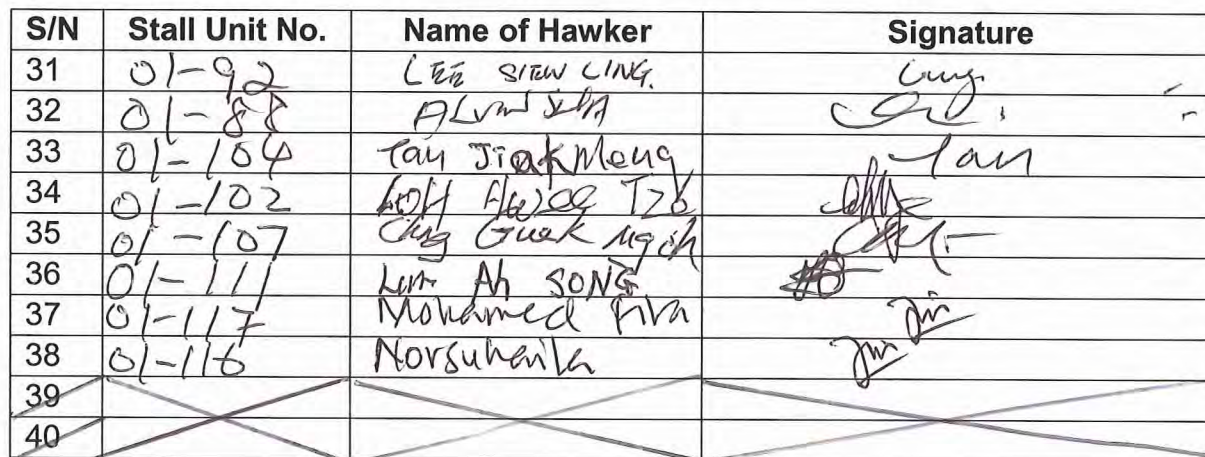 S/N Stall Unit No. Name of Hawker Signature
31 01-92 LEE SIEW LING.
32 01-88 ALVIN
33 01-104 Tan Jiak Meng Tan
34 01-102 LOH
35 01-107 Guek
36 01-111 Lim Ah SONG
37 01-117 Mohamed
38 01-116 Norsuhaila
39
40